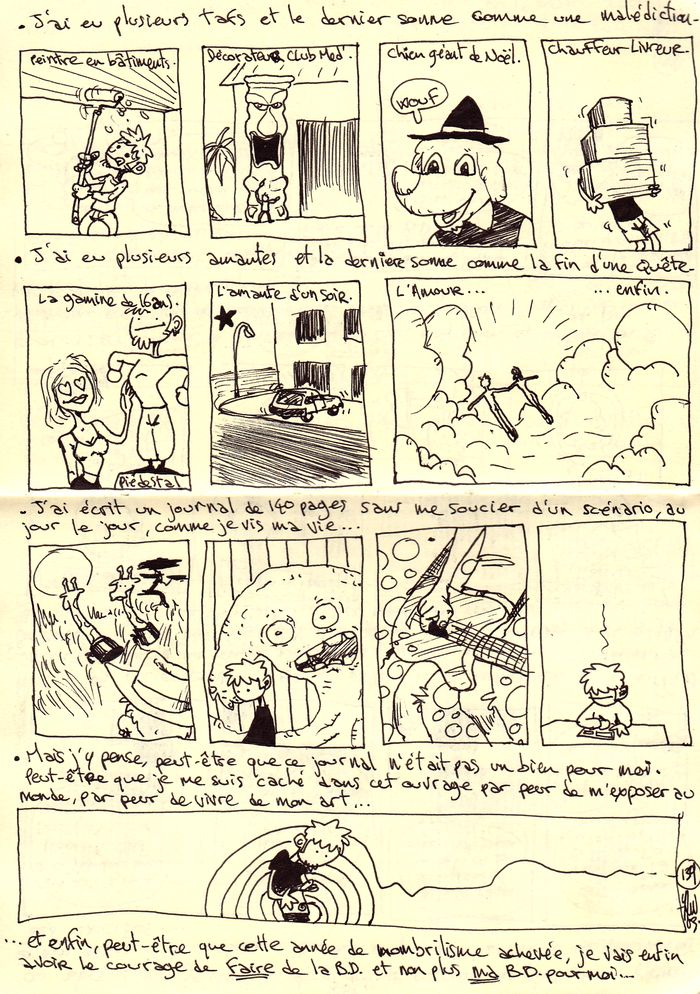 . J'ai eu plusieurs tafs et le dernier sonne comme une malédiction.
Peintre en bâtiments.
Décorateur Club Med'.
Chien géant de Noël.
WOUF
Chauffeur-Livreur.
. J'ai eu plusieurs amantes et la dernière sonne comme la fin d'une Quête.
La gamine de 16 ans.
Piédestal
L'amante d'un soir.
L'Amour...
...enfin.
. J'ai écrit un journal de 140 pages sans me soucier d'un scénario, au
jour le jour, comme je vis ma vie...
. Mais j'y pense, peut-être que ce journal n'était pas un bien pour moi.
Peut-être que je me suis caché dans cet ouvrage par peur de m'exposer au
monde, par peur de vivre de mon art...
139
...et enfin, peut-être que cette année de nombrilisme achevée, je vais enfin
avoir le courage de Faire de la B.D. et non plus ma B.D. pour moi...